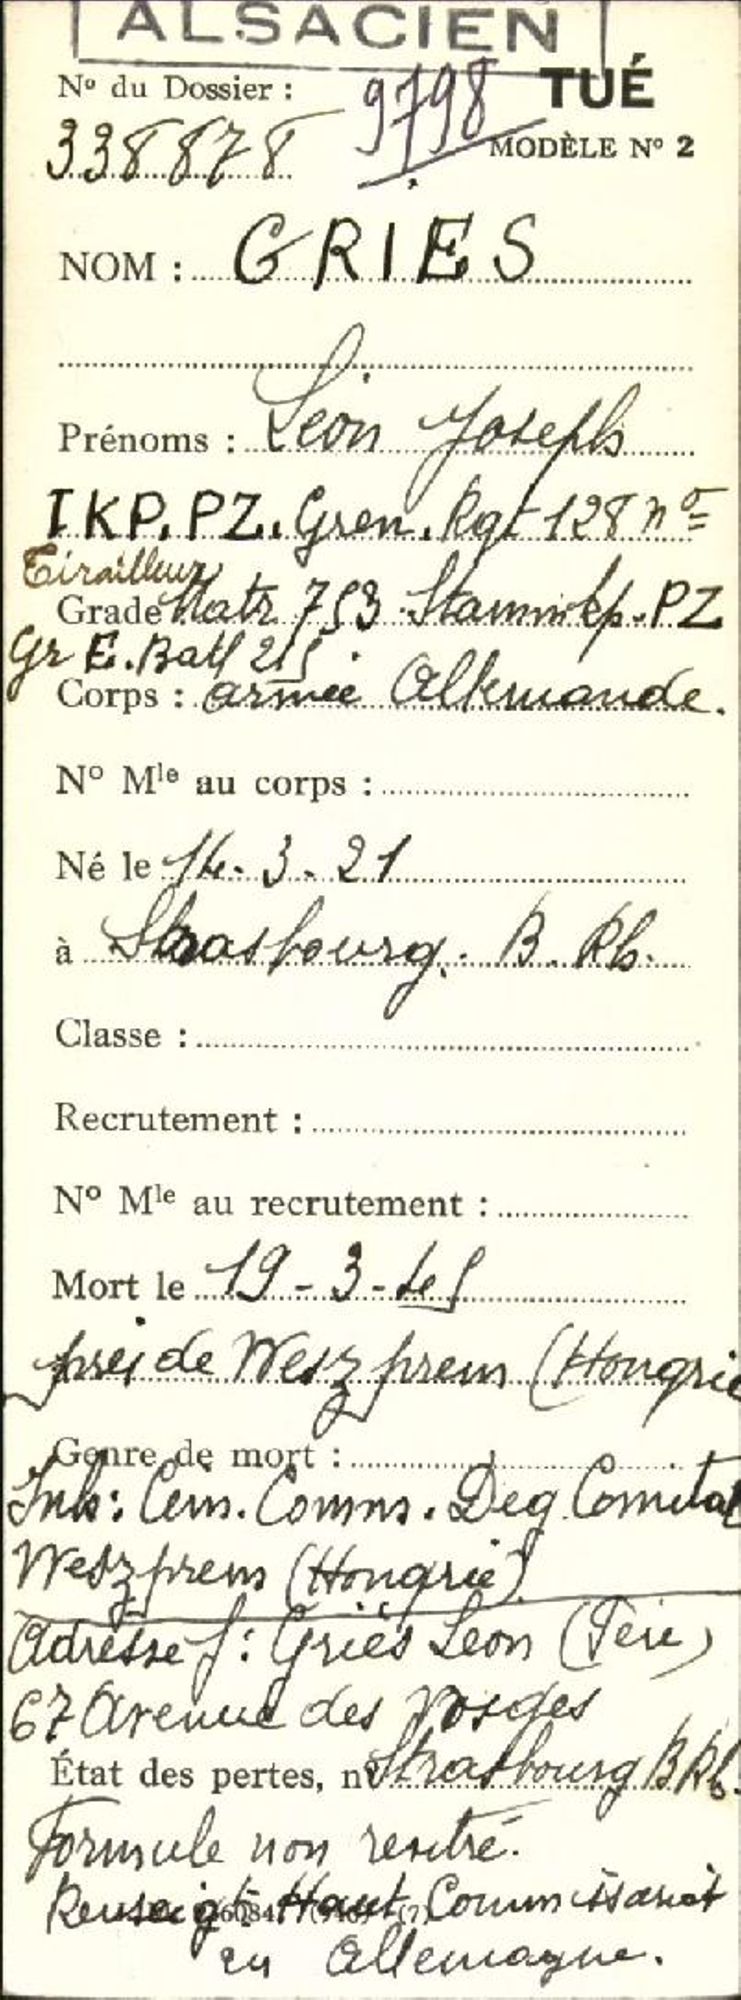 ALSACIEN
N° du Dossier :
9798
TUÉ
338878
MODÈLE N° 2
NOM : GRIES
Prénoms : Léon Joseph
I KP. PZ. Gren. Rgt 128 n°
Tirailleur
Grade Matr 753 Stammkp. PZ
Gr E. Batl 215.
Corps : armée Allemande.
N° Mle au corps :
Né le 14.3.21
à Strasbourg. B. Rh.
Classe :
Recrutement :
N° Mle au recrutement :
Mort le 19-3-45
près de Weszprem (Hongrie
Genre de mort :
Inh: Cim. Comm. Deg Comitat
Weszprem (Hongrie)
Adresse f: Griès Leon (Père)
67 Avenue des Vosges
État des pertes, n° Strasbourg B Rh.
Formule non rentré.
Renseigt Haut Commissariat
en Allemagne.